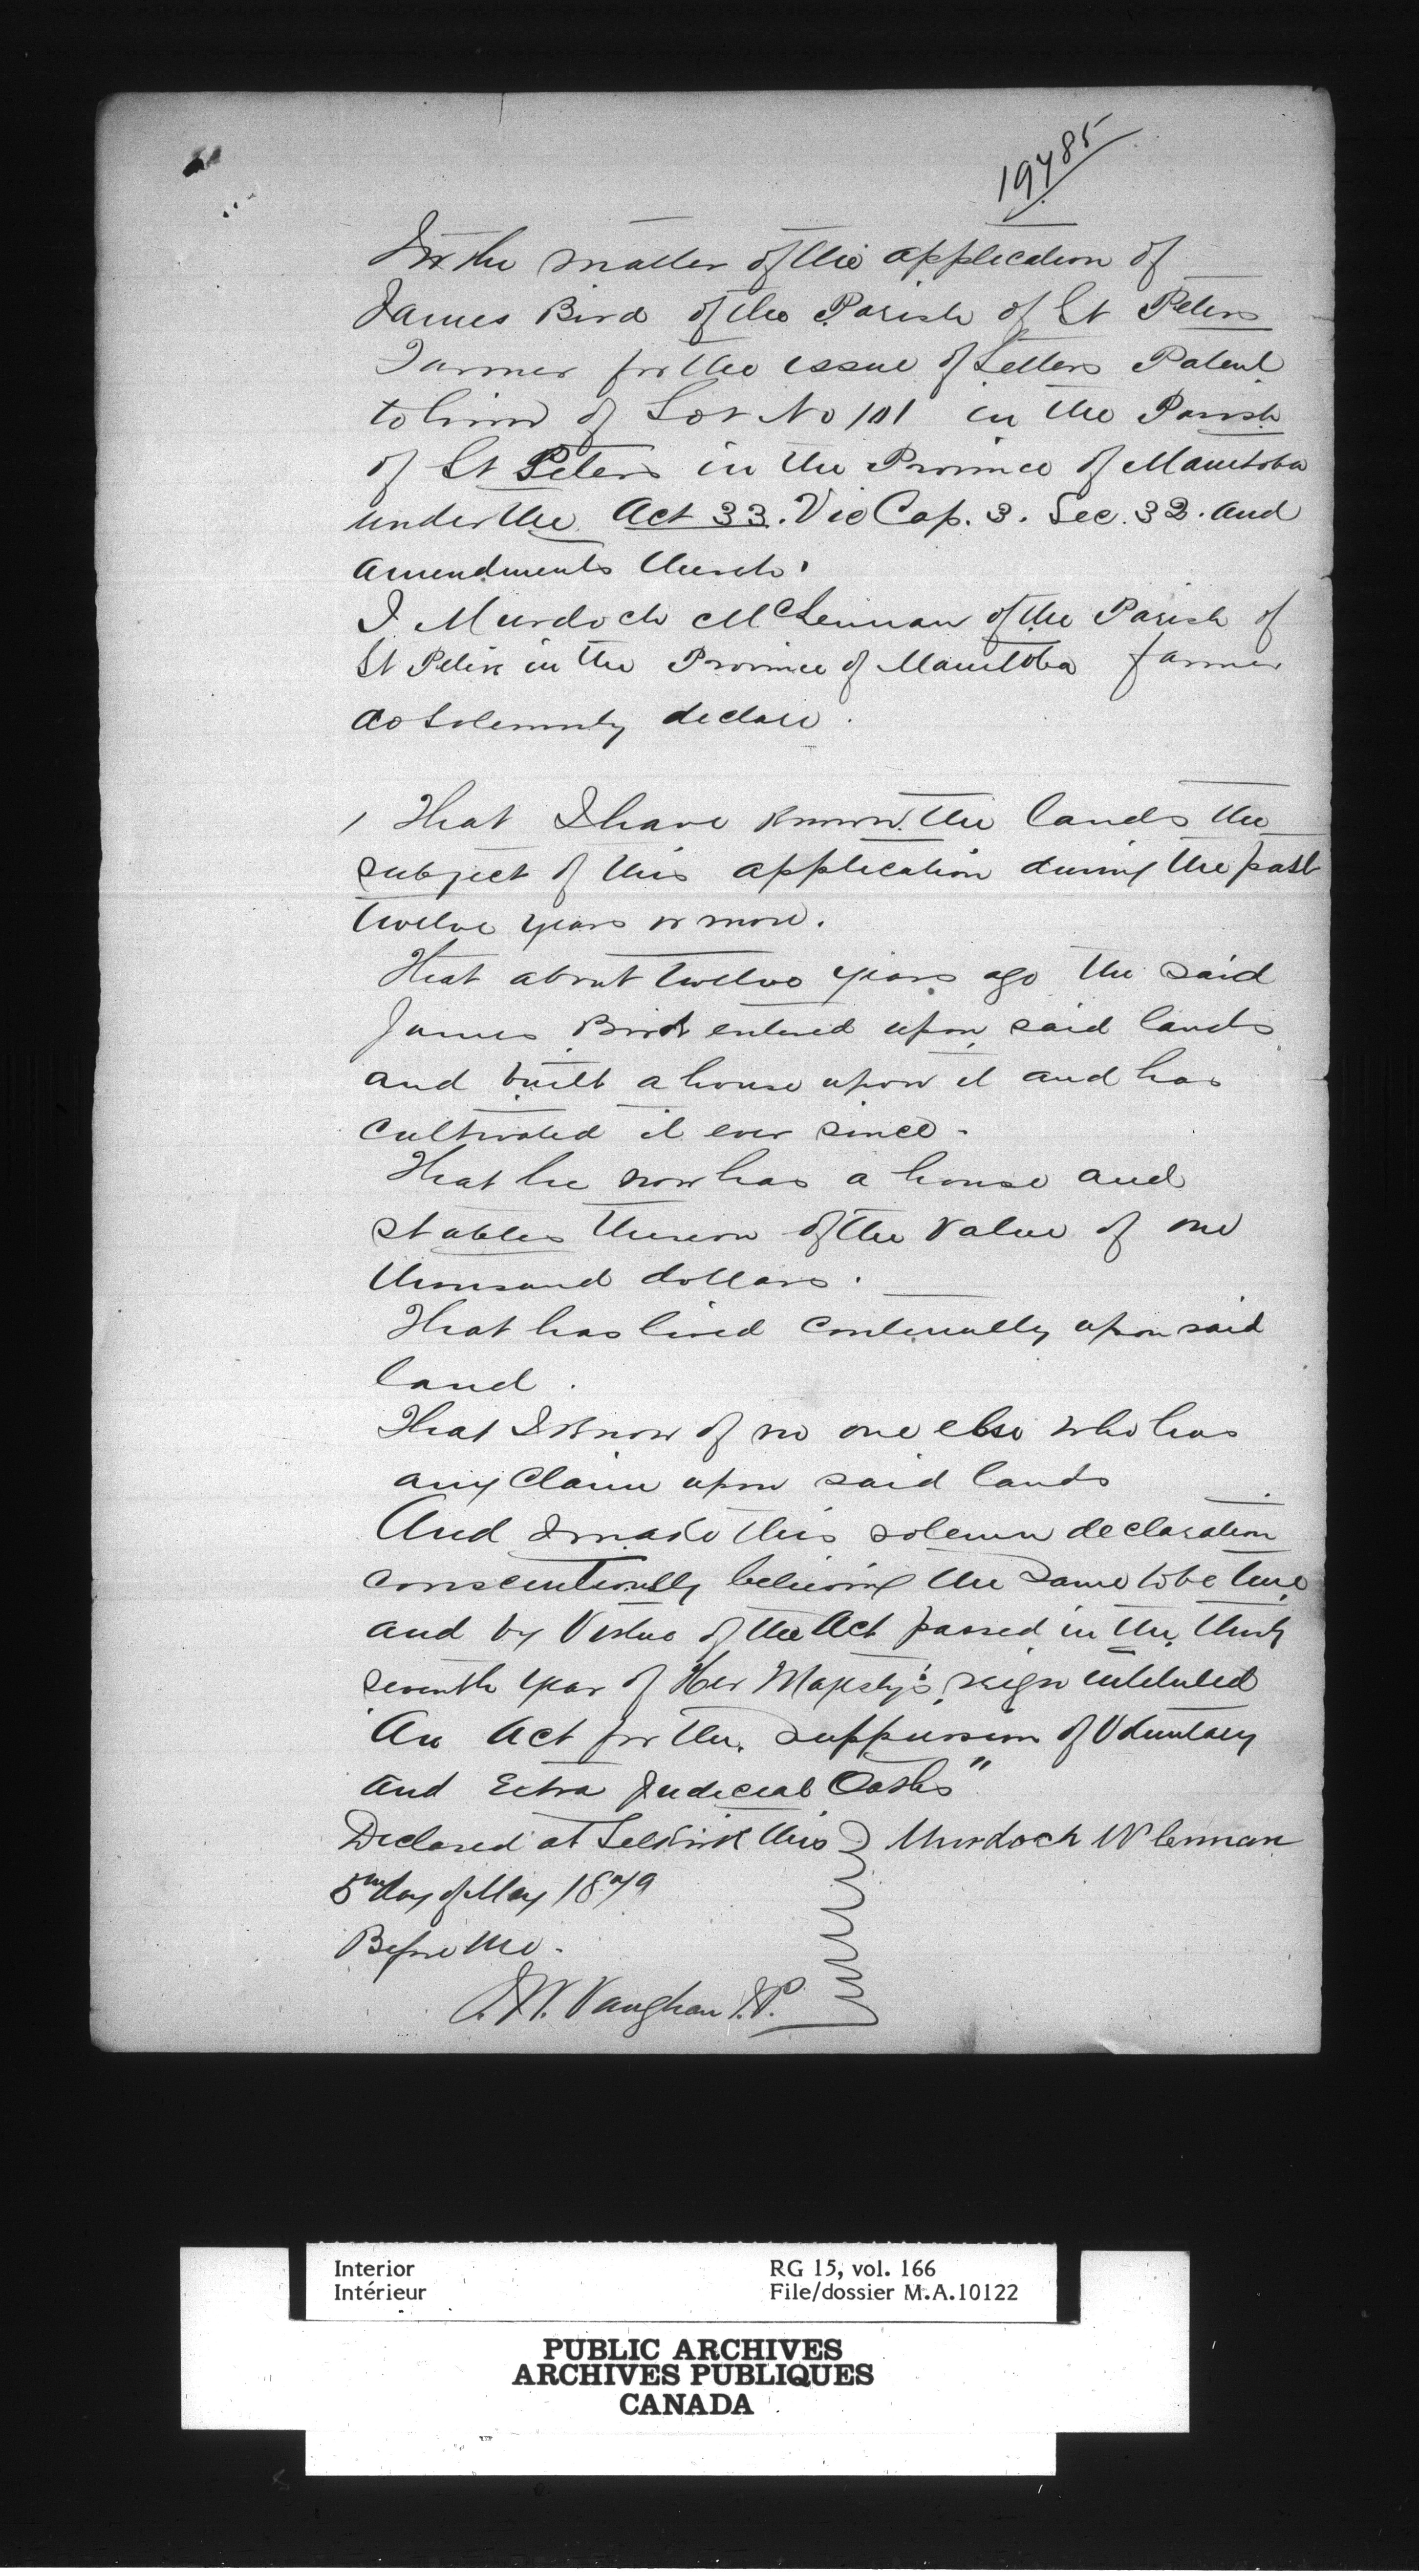 19785
In the matter of the application of
James Bird of the Parish of St Peters
Farmer for the issue of Letters Patent
to him of Lot No 101 in the Parish
of St Peters in the Province of Manitoba
under the Act 33. Vic Cap. 3. Sec. 32. and
amendments thereto.
I Murdoch McLennan of the Parish of
St Peters in the Province of Manitoba farmer
do solemnly declare.
1 That I have known the lands the
subject of this application during the past
twelve years or more.
That about twelve years ago the said
James Bird entered upon said lands
and built a house upon it and has
cultivated it ever since.
That he now has a house and
stables thereon of the value of one
thousand dollars.
That has lived continually upon said
land.
That I know of no one else who has
any claim upon said lands.
And I make this solemn declaration
conscientiously believing the same to be true
and by Virtue of the Act passed in the thirty
seventh year of Her Majesty's reign intituled
"An Act for the suppression of Voluntary
and Extra Judicial Oaths"
Declared at Selkirk this Murdoch McLennan
5th day of May 1879
Before me.
J.W. Vaughan J.P.
Interior RG 15, vol. 166
Intérieur File/dossier M.A.10122
PUBLIC ARCHIVES
ARCHIVES PUBLIQUES
CANADA